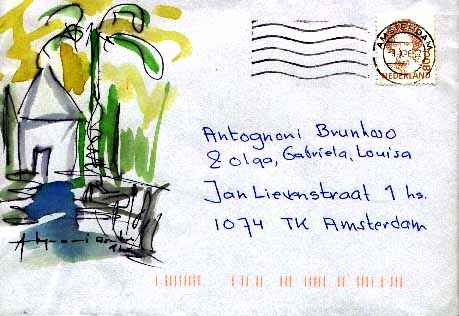 AMSTERDAM
NEDERLAND
80c
Antognoni Brunhoso
& Olga, Gabriela, Louisa
Jan Lievenstraat 1 hs.
1074 TK Amsterdam